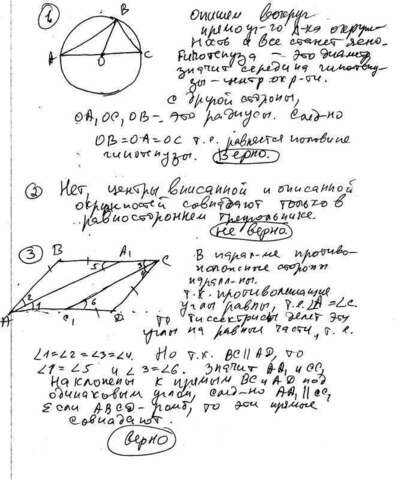 ①
B
A
O
C
опишем вокруг
прямоуг-го Δ-ка окруж-
ность и все станет ясно.
Гипотенуза - это диаметр
значит середина гипотену-
зы - центр окр-ти.
С другой стороны,
OA, OC, OB - это радиусы. След-но
OB = OA = OC т.е. равняется половине
гипотенузы. Верно.
② Нет, центры вписанной и описанной
окружностей совпадают только в
равностороннем треугольнике.
Не верно
③
B A₁ C
5 3 4
2 1 6
A C₁ D
В парал-ме противо-
положные стороны
паралл-ны.
т.к. противолежащие
углы равны, т.е. ∠A = ∠C.
то биссектрисы делят эти
углы на равные части, т.е.
∠1=∠2=∠3=∠4. Но т.к. BC∥AD, то
∠1=∠5 и ∠3=∠6. Значит AA₁ и CC₁
наклонены к прямым BC и AD под
одинаковым углом, след-но AA₁ ∥ CC₁
Если ABCD - ромб, то эти прямые
совпадают.
верно